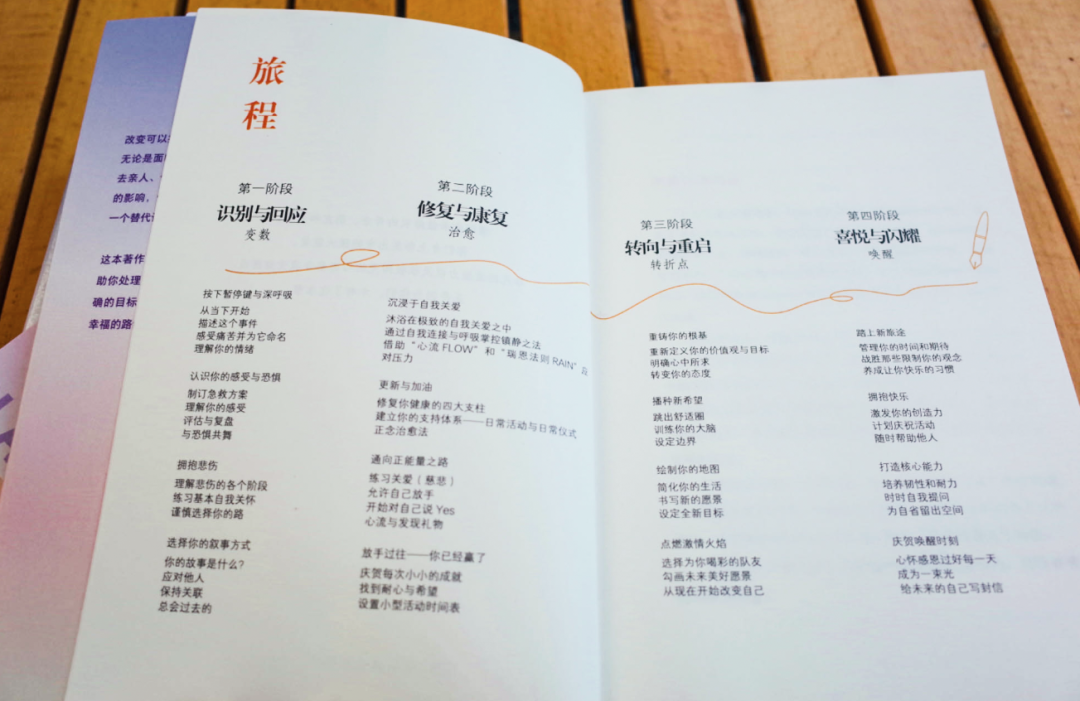 旅
程
第一阶段
识别与回应
变数
按下暂停键与深呼吸
从当下开始
描述这个事件
感受痛苦并为它命名
理解你的情绪
认识你的感受与恐惧
制订急救方案
理解你的感受
评估与复盘
与恐惧共舞
拥抱悲伤
理解悲伤的各个阶段
练习基本自我关怀
谨慎选择你的路
选择你的叙事方式
你的故事是什么?
应对他人
保持关联
总会过去的
第二阶段
修复与康复
治愈
沉浸于自我关爱
沐浴在极致的自我关爱之中
通过自我连接与呼吸掌控镇静之法
借助“心流 FLOW”和“瑞恩法则 RAIN”
对压力
更新与加油
修复你健康的四大支柱
建立你的支持体系——日常活动与日常仪式
正念治愈法
通向正能量之路
练习关爱(慈悲)
允许自己放手
开始对自己说 Yes
心流与发现礼物
放手过往——你已经赢了
庆贺每次小小的成就
找到耐心与希望
设置小型活动时间表
第三阶段
转向与重启
转折点
重铸你的根基
重新定义你的价值观与目标
明确心中所求
转变你的态度
播种新希望
跳出舒适圈
训练你的大脑
设定边界
绘制你的地图
简化你的生活
书写新的愿景
设定全新目标
点燃激情火焰
选择为你喝彩的队友
勾画未来美好愿景
从现在开始改变自己
第四阶段
喜悦与闪耀
唤醒
踏上新旅途
管理你的时间和期待
战胜那些限制你的观念
养成让你快乐的习惯
拥抱快乐
激发你的创造力
计划庆祝活动
随时帮助他人
打造核心能力
培养韧性和耐力
时时自我提问
为自省留出空间
庆贺唤醒时刻
心怀感恩过好每一天
成为一束光
给未来的自己写封信
改变可以
无论是面
去亲人、
的影响,
一个替代
这本著作
助你处理
确的目标
幸福的路